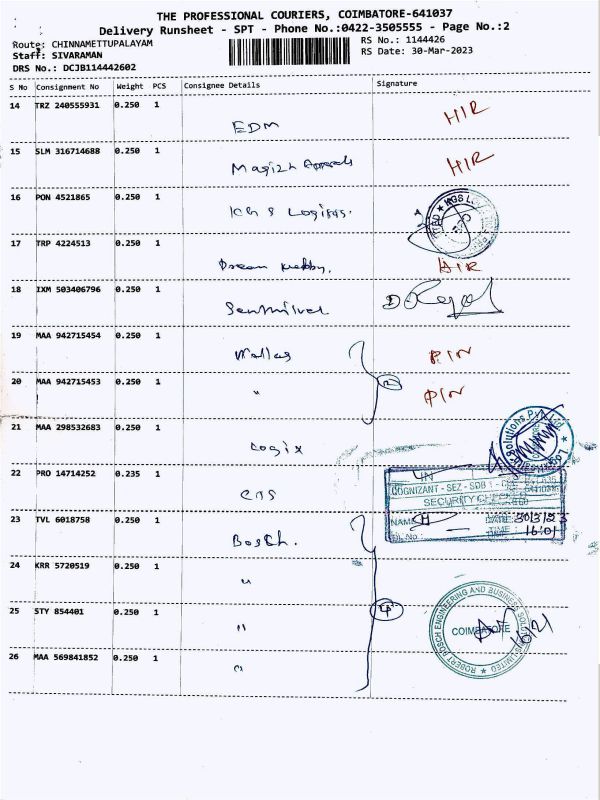 THE PROFESSIONAL COURIERS, COIMBATORE-641037
Delivery Runsheet - SPT - Phone No.:0422-3505555 - Page No.:2
Route: CHINNAMETTUPALAYAM RS No.: 1144426
Staff: SIVARAMAN RS Date: 30-Mar-2023
DRS No.: DCJB114442602
S No Consignment No Weight PCS Consignee Details Signature
14 TRZ 240555931 0.250 1 EDM HIR
15 SLM 316714688 0.250 1 HIR
16 PON 4521865 0.250 1
17 TRP 4224513 0.250 1 Dream HIR
18 IXM 503406796 0.250 1 Senthilvel
19 MAA 942715454 0.250 1 PIN
20 MAA 942715453 0.250 1 " 2 PIN
21 MAA 298532683 0.250 1 Logix
Solutions Pvt Ltd
22 PRO 14714252 0.235 1 CTS
COGNIZANT - SEZ - SDB 1
SECURITY CHECK
NAME DATE 30/3/23
TIME 16:01
23 TVL 6018758 0.250 1 Bosch.
24 KRR 5720519 0.250 1 "
25 STY 854401 0.250 1 " 4
ROBERT BOSCH ENGINEERING AND BUSINESS SOLUTIONS LIMITED
COIMBATORE
26 MAA 569841852 0.250 1 "